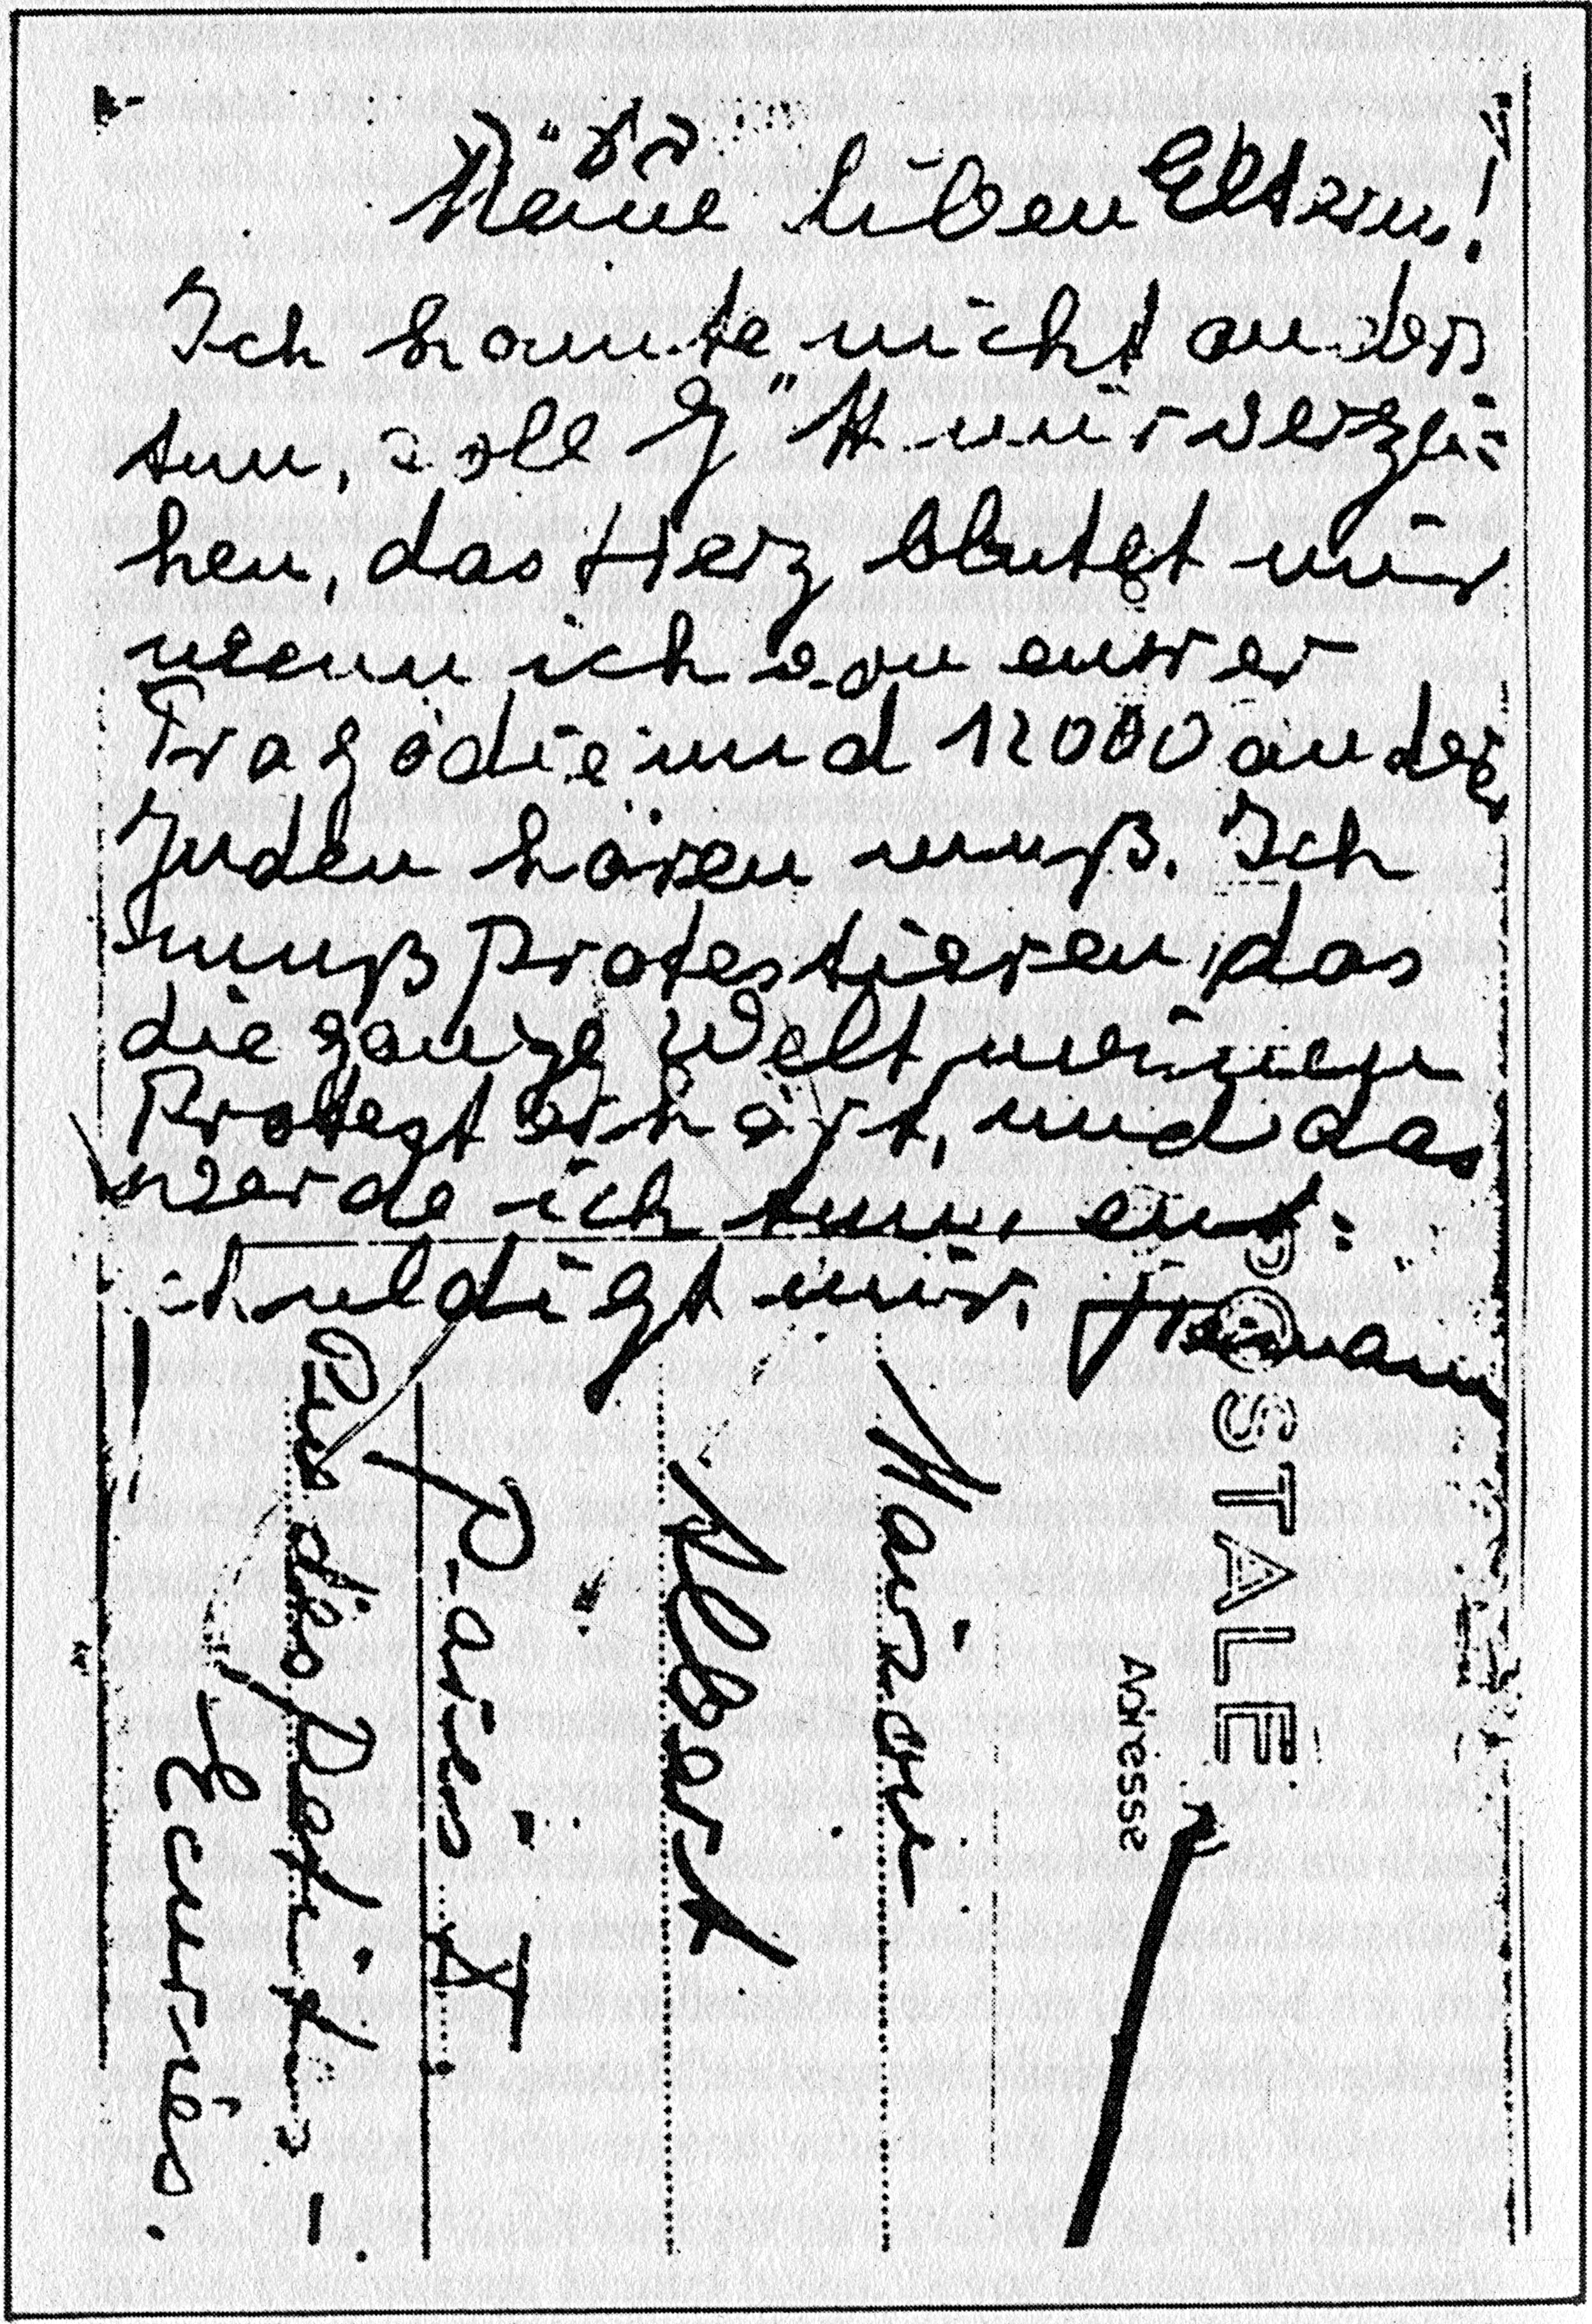 ב"ה
Meine liben Eltern!
Ich konnte nicht anders
tun, soll G"tt mir verzei=
hen, das Herz blutet mir
wenn ich von eurer
Tragödie und 12000 anderer
Juden hören muß. Ich
muß protestieren, das
die ganze Welt meinen
Protest erhört, und das
werde ich tun, ent=
schuldigt mir. Hermann
POSTALE
Adresse
Maison
Albert
Paris X
Rue des Petites-
Ecuries.